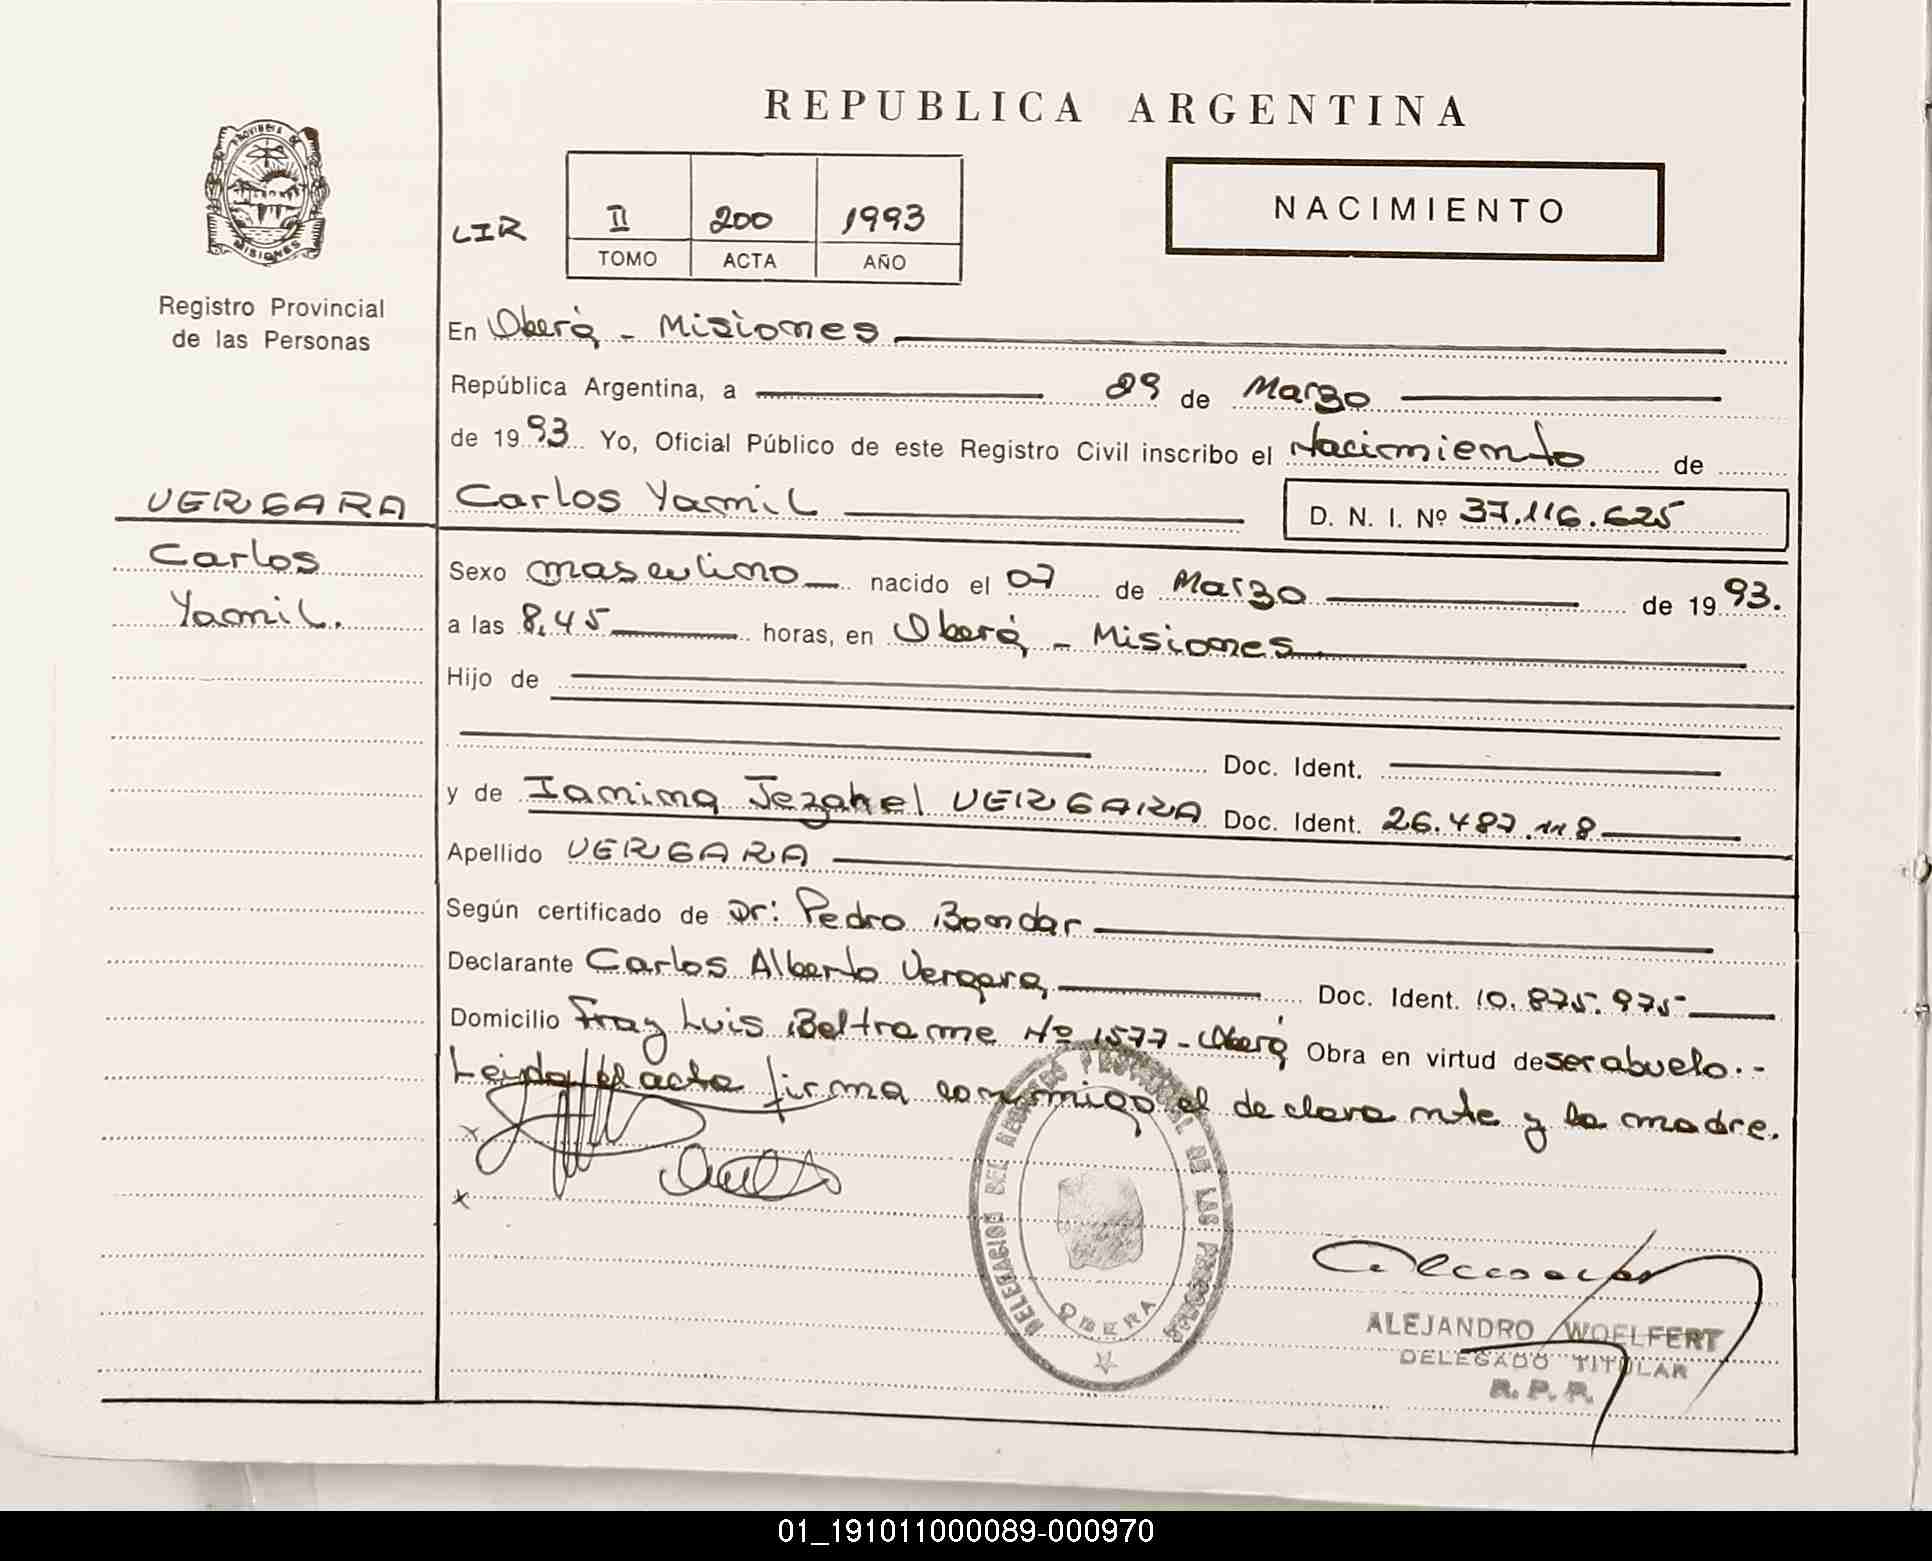 REPUBLICA ARGENTINA
PROVINCIA DE
MISIONES
Registro Provincial
de las Personas
LIR
II 200 1993
TOMO ACTA AÑO
NACIMIENTO
En Oberá - Misiones
República Argentina, a 29 de Marzo
de 1993 Yo, Oficial Público de este Registro Civil inscribo el Nacimiento de
VERGARA
Carlos
Yamil.
Carlos Yamil D. N. I. Nº 37.116.625
Sexo masculino nacido el 07 de Marzo de 1993.
a las 8,45 horas, en Oberá - Misiones.
Hijo de
Doc. Ident.
y de Iamima Jezabel VERGARA Doc. Ident. 26.487.118
Apellido VERGARA
Según certificado de Dr: Pedro Bondar
Declarante Carlos Alberto Vergara, Doc. Ident. 10.875.975
Domicilio Fray Luis Beltrame Nº 1577 - Oberá Obra en virtud de ser abuelo.-
Leida el acta firma conmigo el declarante y la madre.
x
x
DELEGACION DEL REGISTRO PROVINCIAL DE LAS PERSONAS
OBERA
ALEJANDRO WOELFERT
DELEGADO TITULAR
R. P. P.
01_191011000089-000970